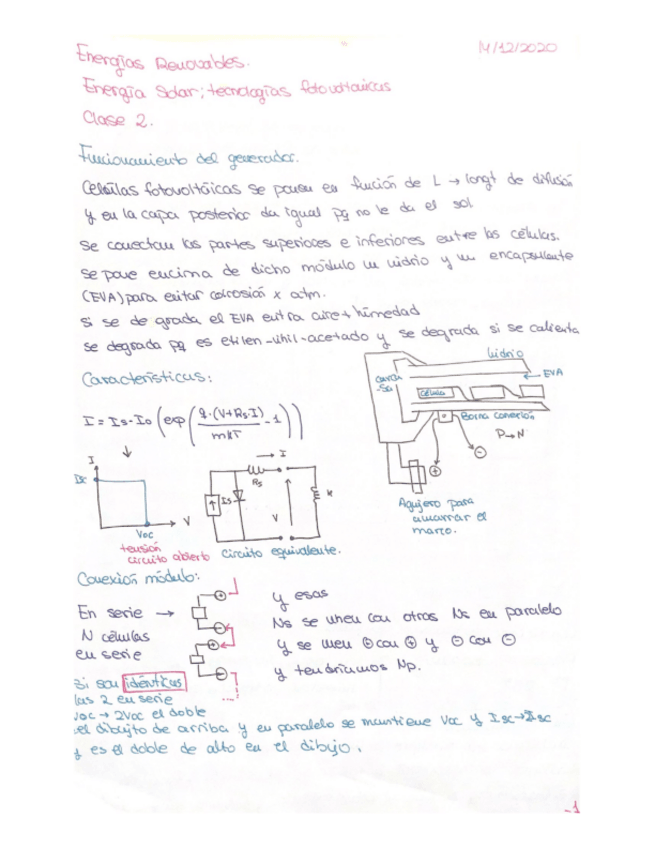 Energías Renovables. 14/12/2020
Energía Solar; tecnologías fotovoltaicas
Clase 2.
Funcionamiento del generador.
Células fotovoltáicas se ponen en función de L → longt de difusión
y en la capa posterior da igual pq no le da el sol
se conectan las partes superiores e inferiores entre las células.
se pone encima de dicho módulo un vidrio y un encapsulante
(EVA) para evitar corrosión x atm.
si se de grada el EVA entra aire + humedad
se degrada pq es etilen-vinil-acetado y se degrada si se calienta
Características:
I = Is - Io (exp (q·(V+Rs·I) / mkT - 1))
I
Isc
Voc
V
tensión
circuito abierto
→ I
Rs
Is
V
circuito equivalente.
vidrio
EVA
carca
sa
célula
Borna conexión
P→N
+
-
Agujero para
amarrar el
marco.
Conexión módulo:
En serie →
N células
en serie
+
-
+
-
y esas
Ns se unen con otros Ns en paralelo
y se unen ⊕ con ⊕ y ⊖ con ⊖
y tendríamos Np.
Si son idénticas
las 2 en serie
Voc → 2Voc el doble
el dibujito de arriba y en paralelo se mantiene Voc y Isc→2Isc
y es el doble de alto en el dibujo.
-1